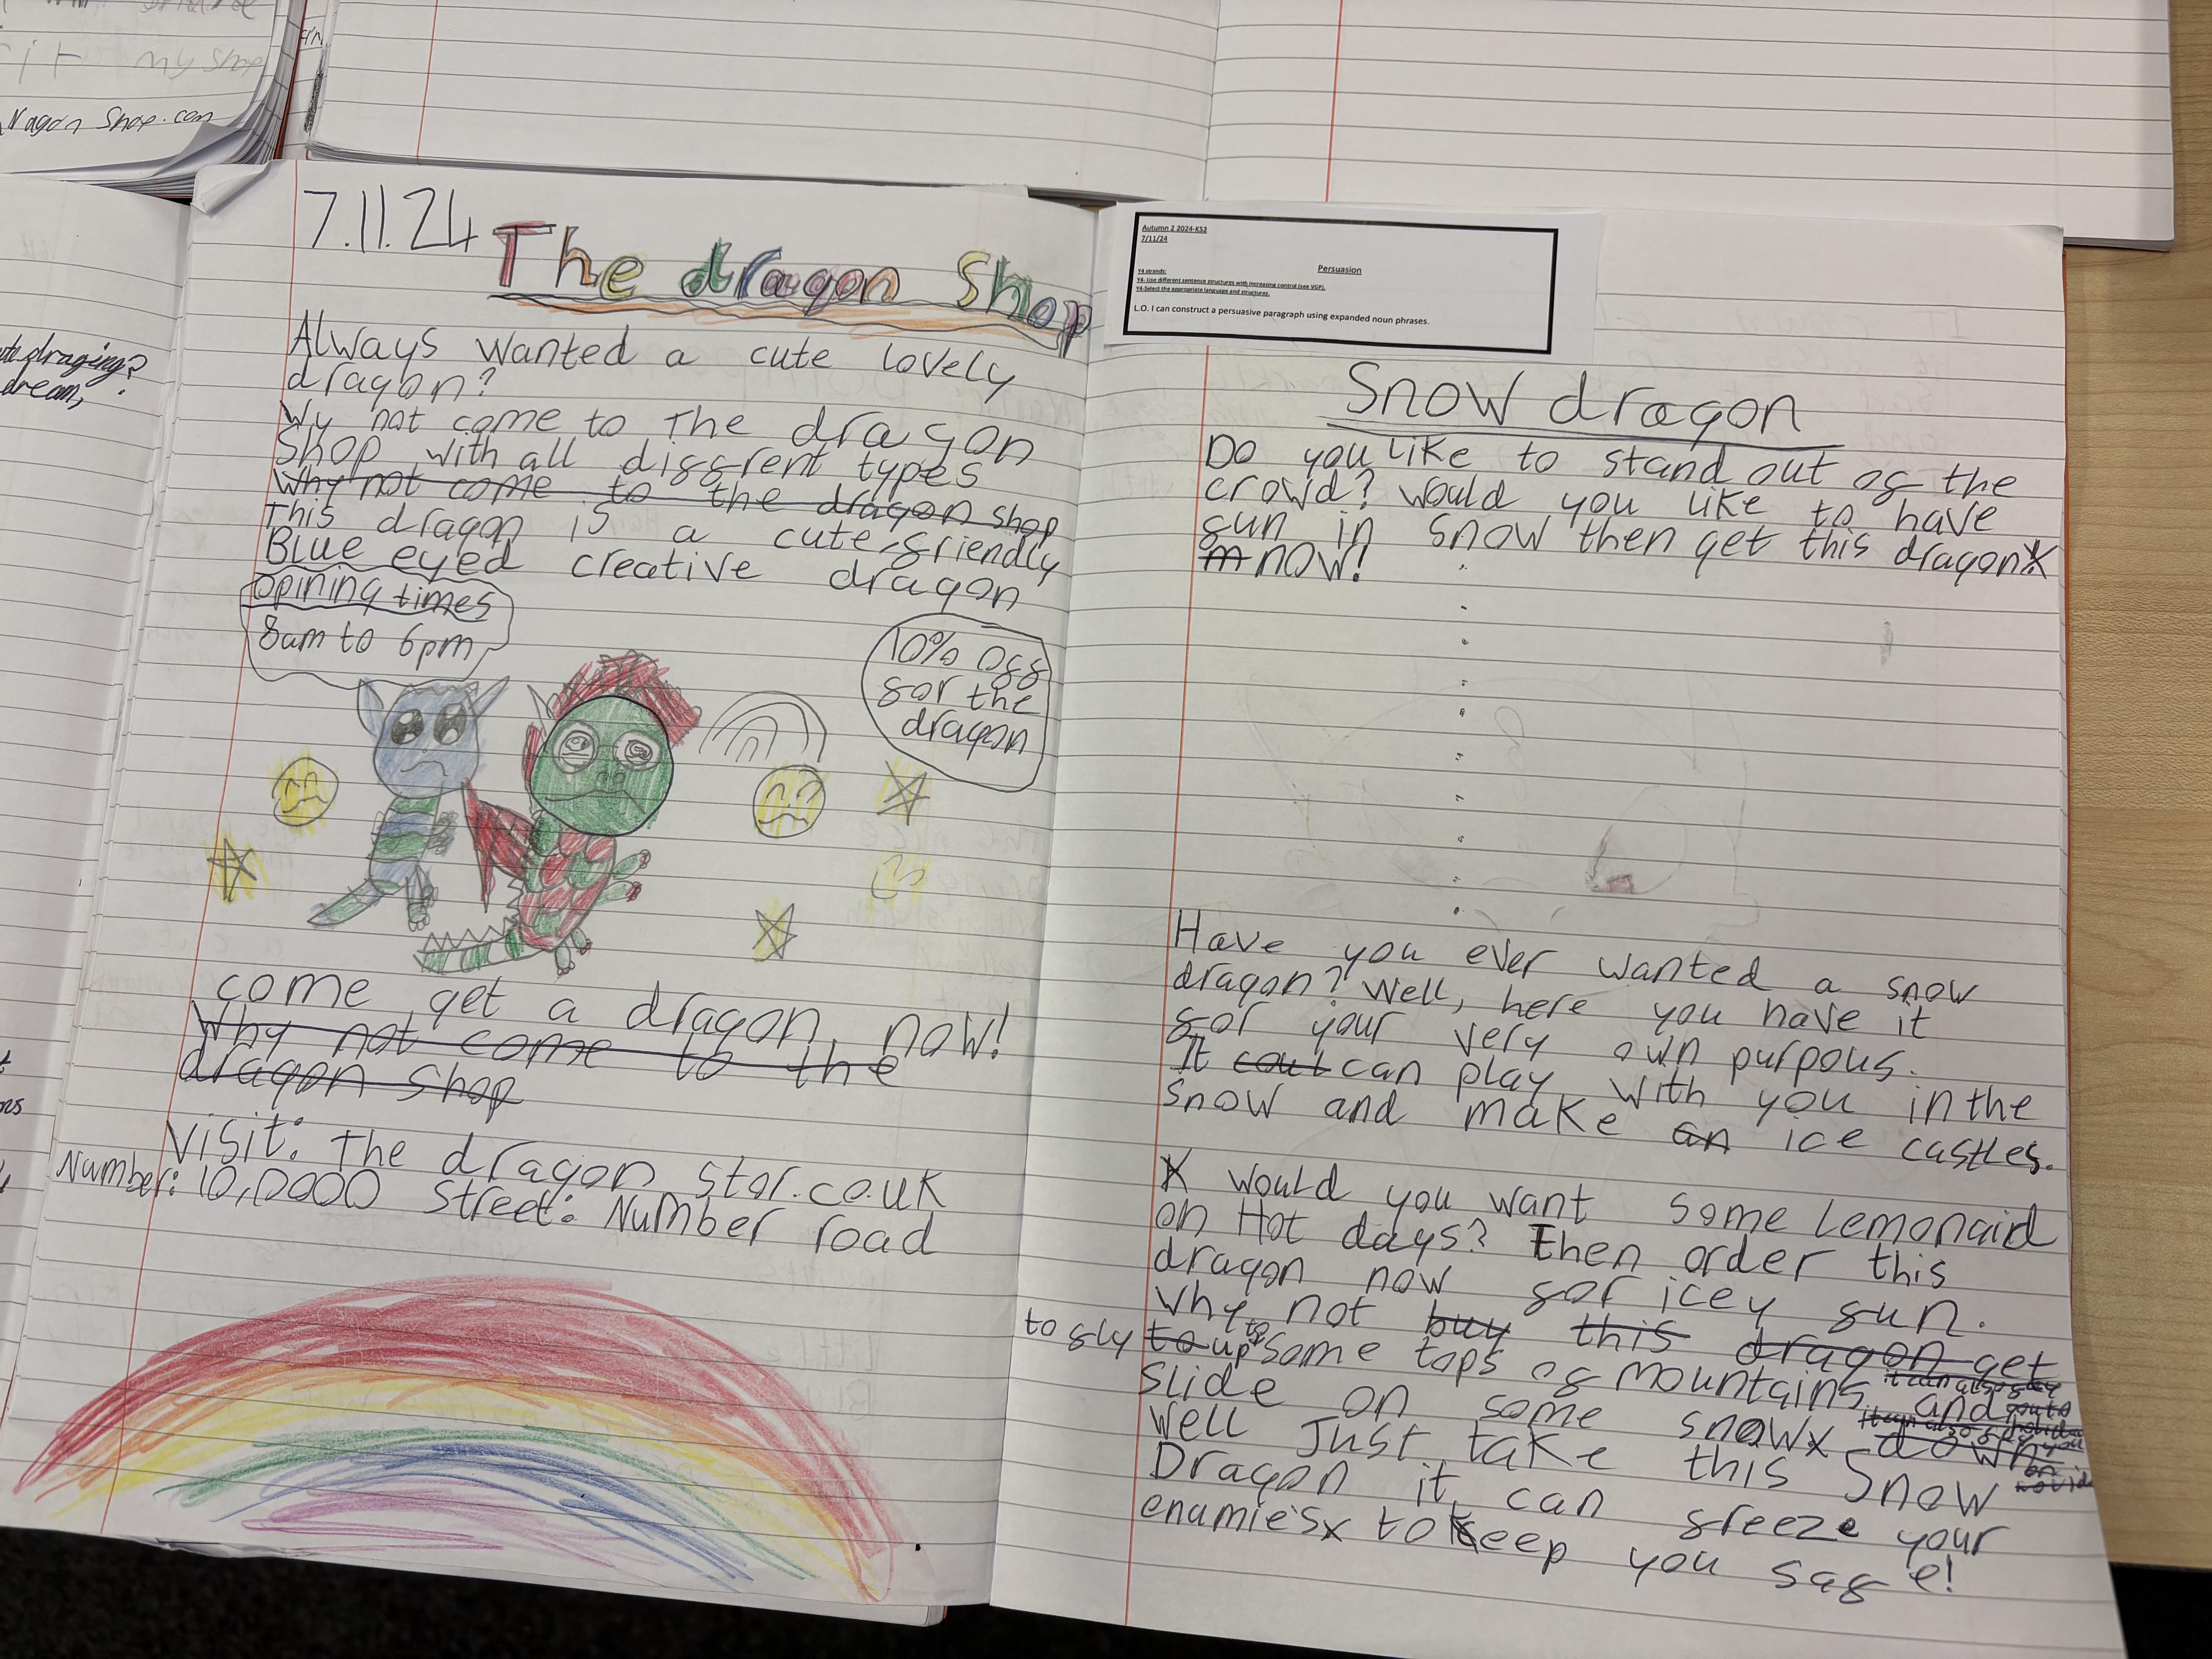 my shop
Dragon Shop.com
dream,
7.11.24
The dragon Shop
Always wanted a cute lovely
dragon?
Wy not come to The dragon
Shop with all diffrent types
Why not come to the dragon shop
This dragon is a cute, friendly
Blue eyed creative dragon
opining times
8am to 6pm
10% off
for the
dragon
come get a dragon, now!
Why not come to the
dragon shop
Visit: The dragon stor.co.uk
Number: 10,0000 Street: Number road
Autumn 2 2024-KS2
7/11/24
Persuasion
Y4 strands:
Y4- Use different sentence structures with increasing control (see VGP).
Y4-Select the appropriate language and structures.
L.O. I can construct a persuasive paragraph using expanded noun phrases.
Snow dragon
Do you like to stand out of the
crowd? Would you like to have
fun in snow then get this dragon
now!
Have you ever wanted a snow
dragon? Well, here you have it
for your very own purpous.
It can play with you in the
snow and make an ice castles.
Would you want some Lemonaid
on Hot days? Then order this
dragon now for icey fun.
Why not buy this dragon get
to fly to up to some tops of mountains and
Slide on some snow down
Well Just take this Snow
Dragon it can freeze your
enamie's to keep you safe!